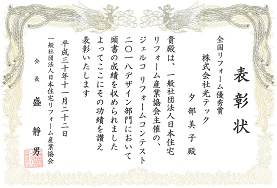 表彰状
全国リフォーム優秀賞
株式会社光テック
夕部美子殿
貴殿は、一般社団法人日本住宅
リフォーム産業協会主催の、
ジェルコ リフォームコンテスト
二〇一八デザイン部門において
頭書の成績を収められました
よってここにその功績を讃え
表彰いたします
平成三十年十一月二十二日
一般社団法人日本住宅リフォーム産業協会
会長 盛 静男